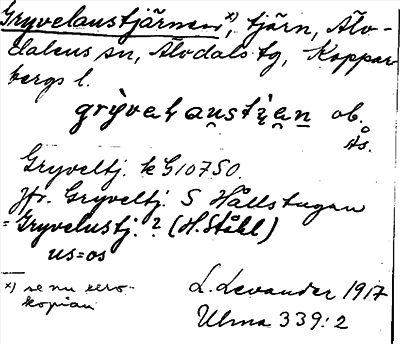 Gryvelaustjärnen x), tjärn, Älv-
dalens sn, Älvdals tg, Koppar-
bergs l.
gry̆velau̯sti̯ẹn ob.
Ås.
Gryveltj. k G10750.
Jfr. Gryveltj. S Hållstugan
= Gryvelustj.? (H. Ståhl)
us = os
x) se nu xero-
kopian
L. Levander 1917
Ulma 339:2